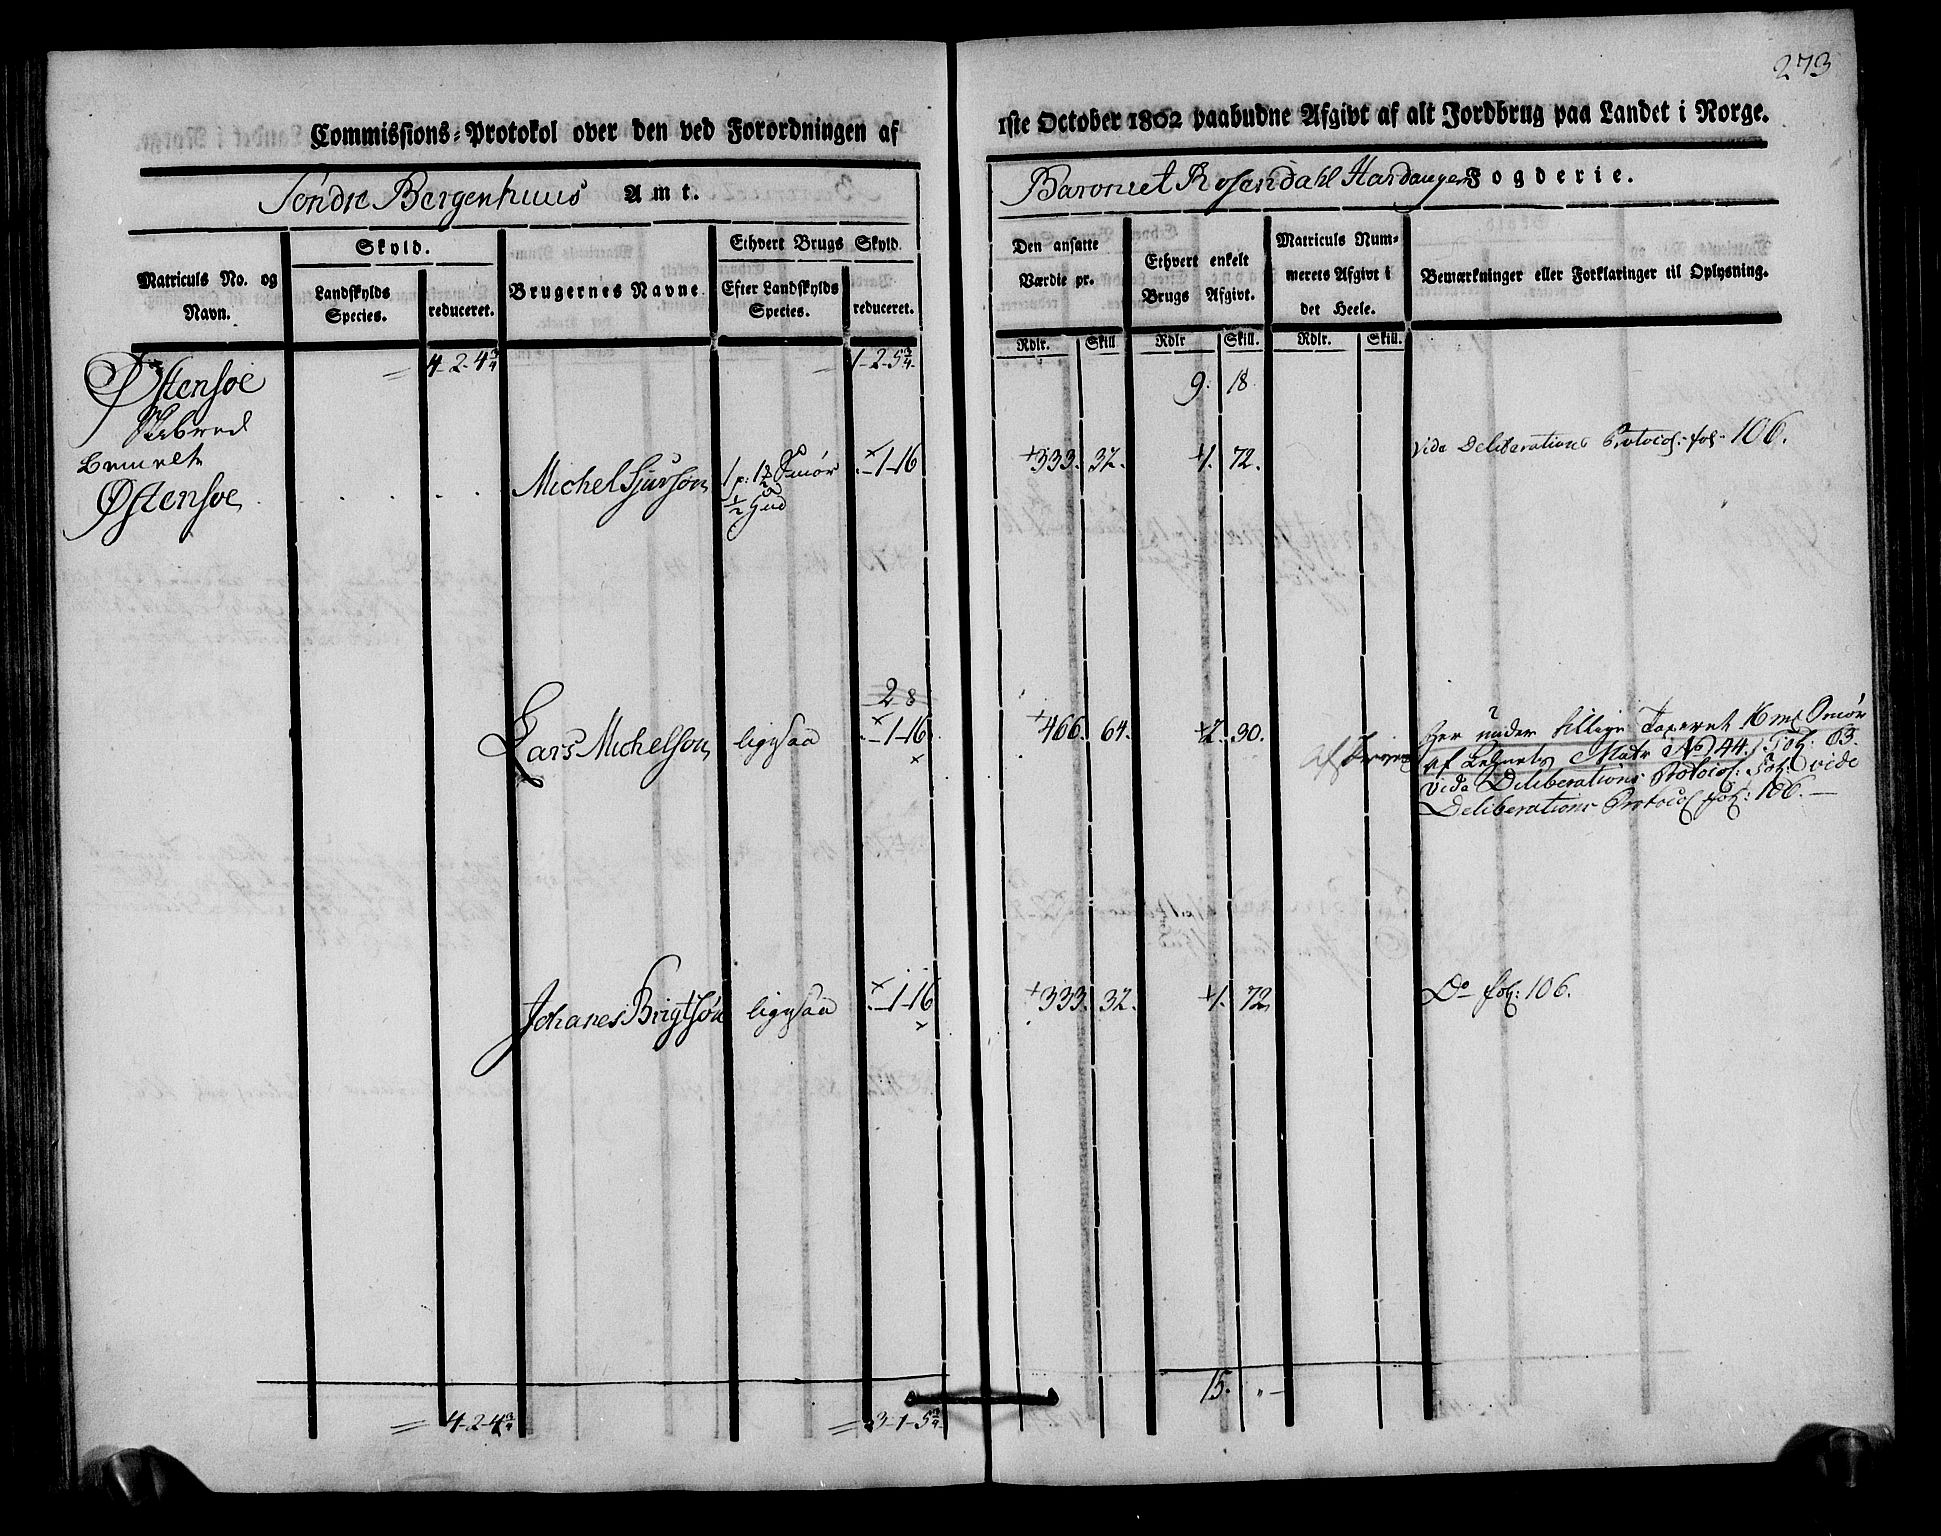 273
Commissions-Protokol over den ved Forordningen af 1ste October 1802 paabudne Afgivt af alt Jordbrug paa Landet i Norge.
Søndre Bergenhuus Amt. Baroniet Rosendahl Hardanger Fogderie.
Matriculs No. og Navn.
Skyld.
Landskylds Species.
reduceret.
Brugernes Navne
Ethvert Brugs Skyld
Efter Landskylds Species.
reduceret.
Den ansatte Værdie pr.
Rdlr. Skill
Ethvert enkelt Brugs Afgivt.
Rdlr Skill.
Matriculs Nummerets Afgivt i det Heele.
Rdlr. Skill.
Bemærkninger eller Forklaringer til Oplysning.
Østensøe = 4-2-4¾ - 1-2-5¾ 9. 18.
Østensøe . . . . Michel Sjursøn 1 p: 1½ Smør -1-16 333. 32. 1. 72. Vide Deliberations Protocol: fol: 106.
½ Hud
2-8
Lars Michelsøn ligesaa -1-16 466. 64. 2. 30. Her under tillige Taxeret 16 mk Smør
af No 44. Fol: 63.
vide Deliberations Protocol: Fol: vide
Deliberations Protocol fol: 106.
Johanes Brigtsøn ligesaa -1-16 333. 32. 1. 72. Do fol: 106.
15. "-
= 4-2-4¾ = 3-1-5¾